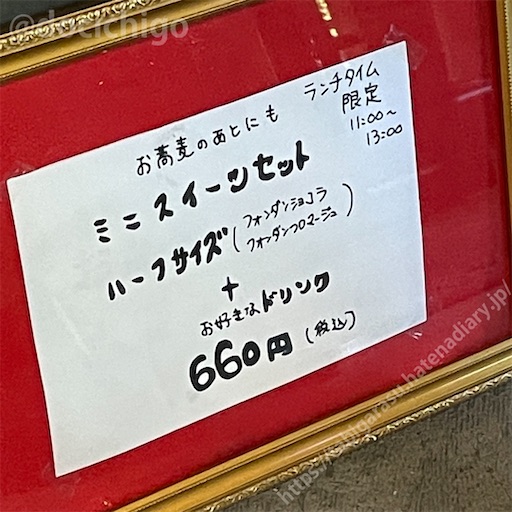 @doeichigo
ランチタイム
限定
11:00〜
13:00
お蕎麦のあとにも
ミニスイーツセット
ハーフサイズ(フォンダンショコラ
フォンダンフロマージュ)
+
お好きなドリンク
660円(税込)
https://shigarasu.hatenadiary.jp/